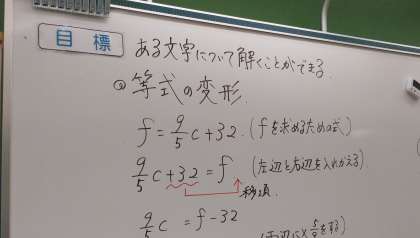 目標 ある文字について解くことができる.
◎等式の変形.
f = 9/5 c + 32. (fを求めるための式)
9/5 c + 32 = f (左辺と右辺を入れかえる)
移項
9/5 c = f - 32
(両辺に×5/9をする)